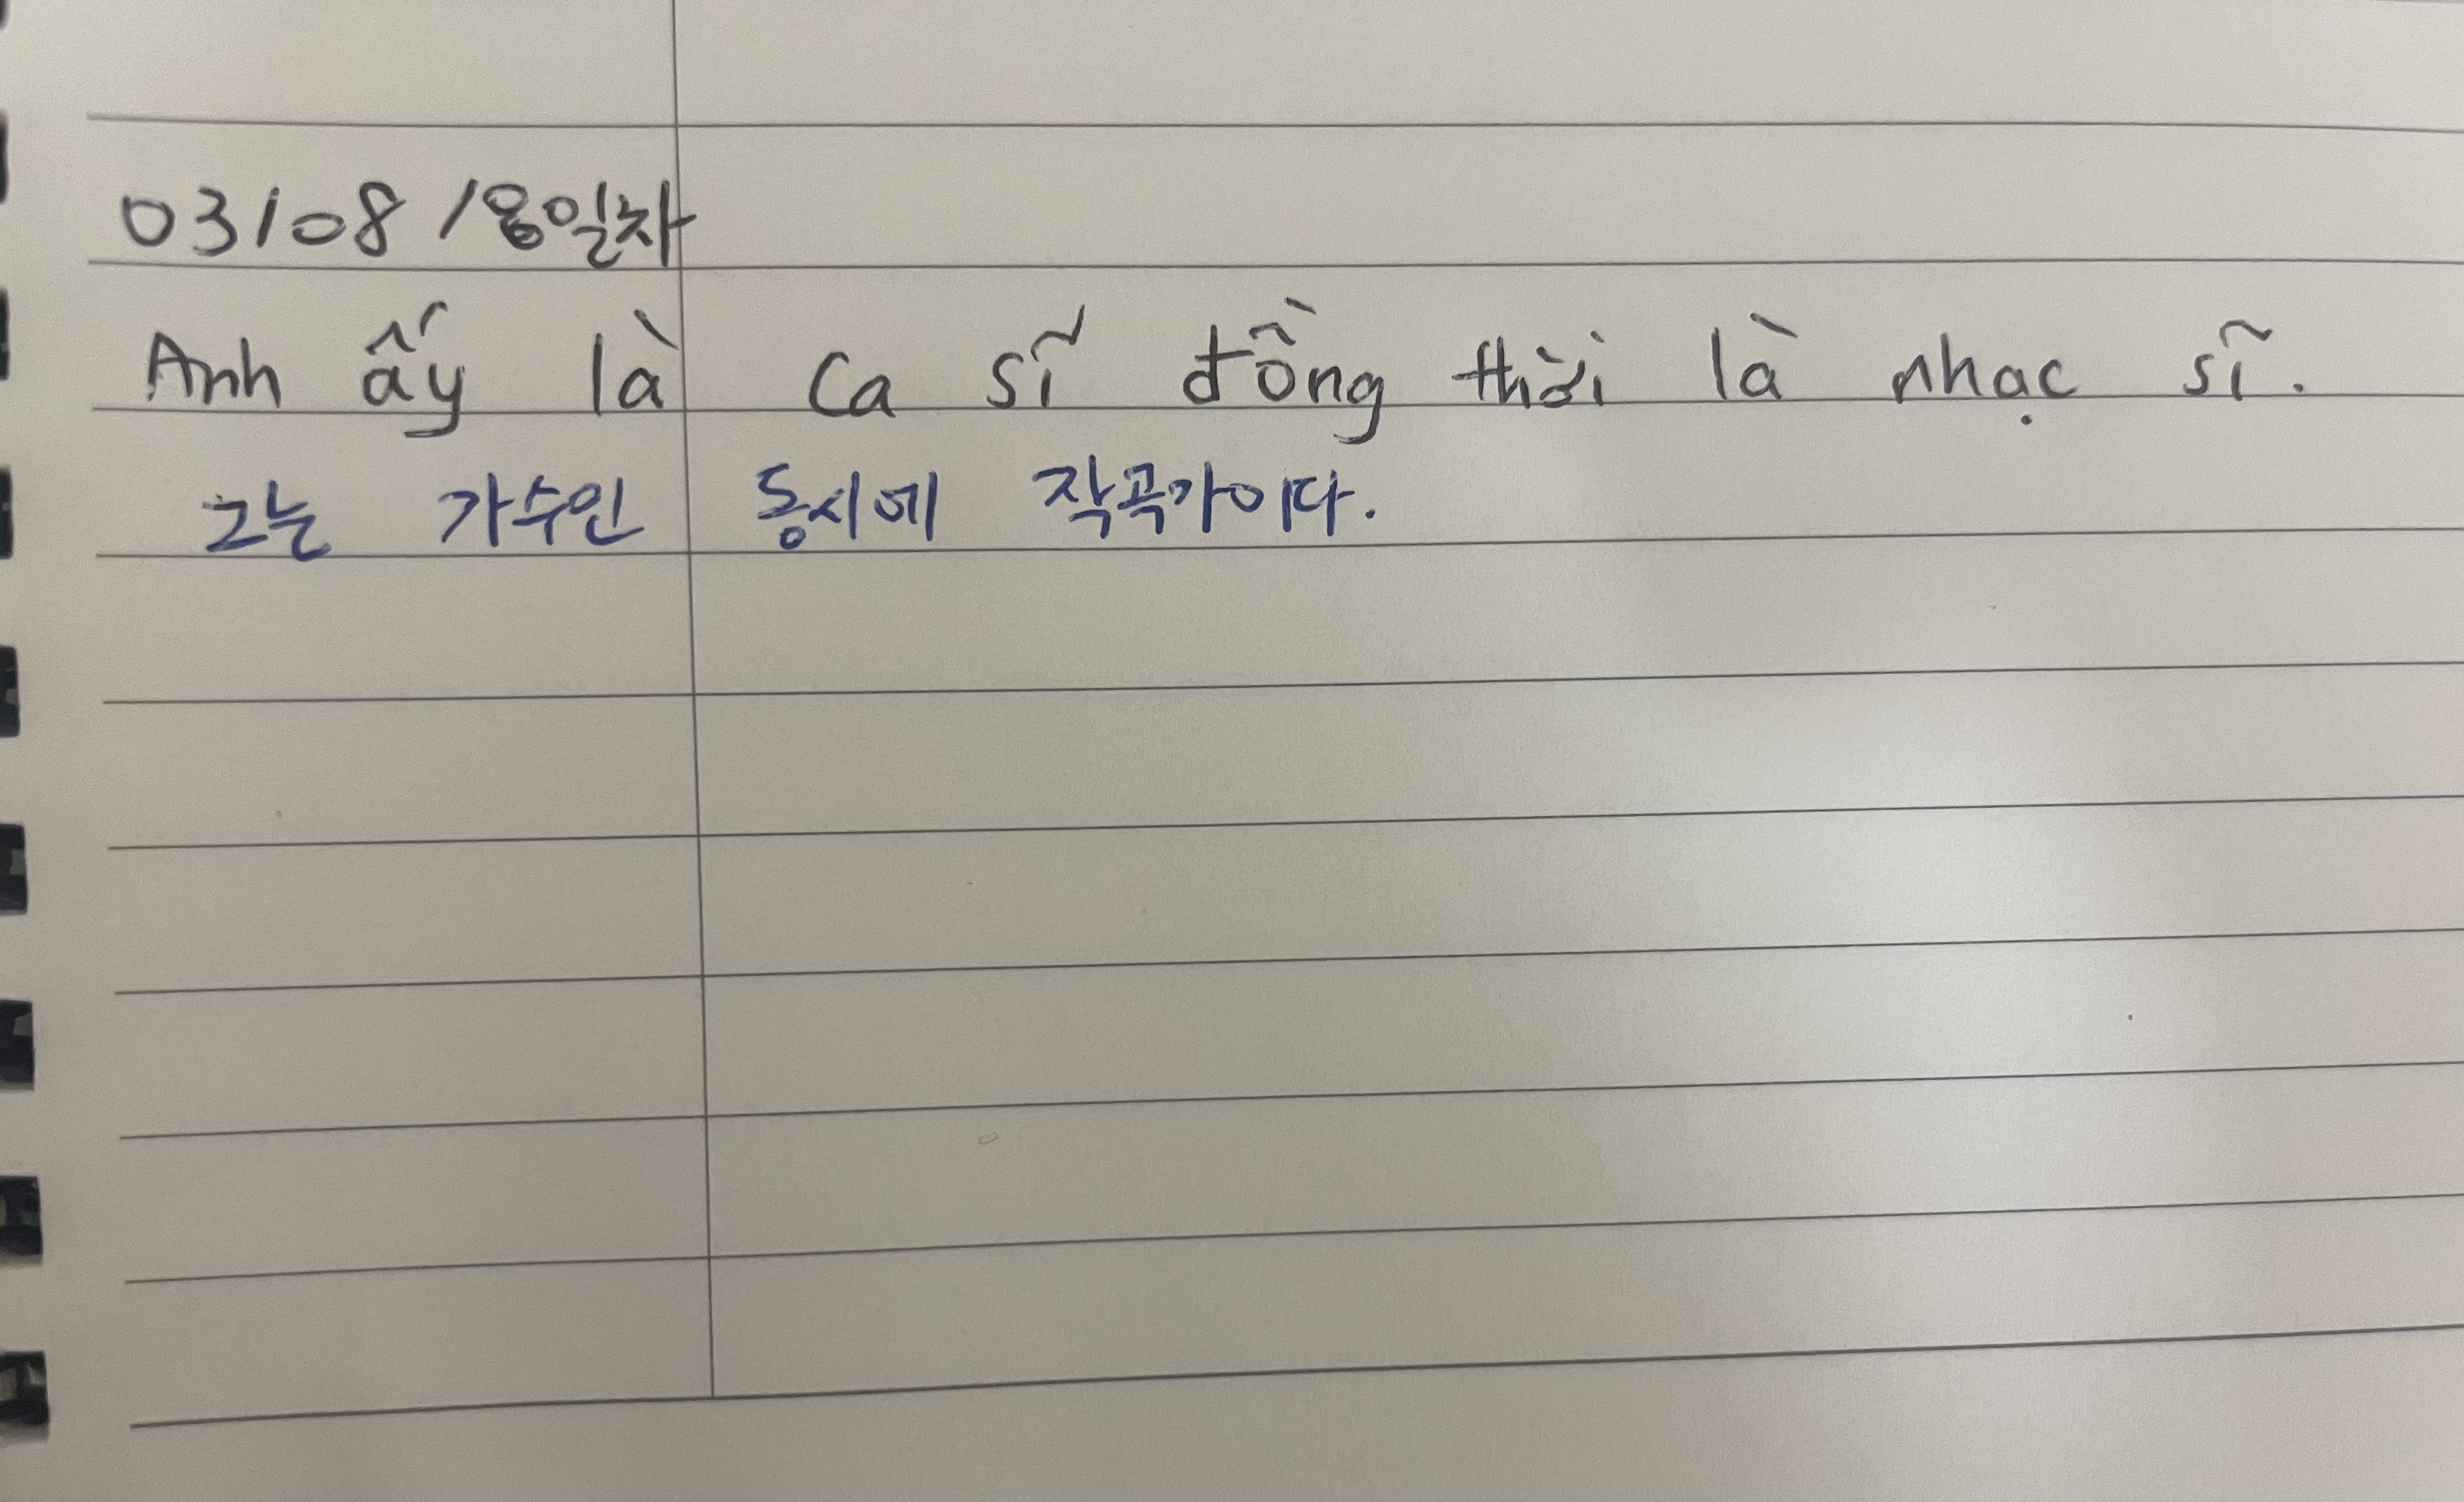 03/08 / 8일차
Anh ấy là ca sĩ đồng thời là nhạc sĩ.
그는 가수인 동시에 작곡가이다.